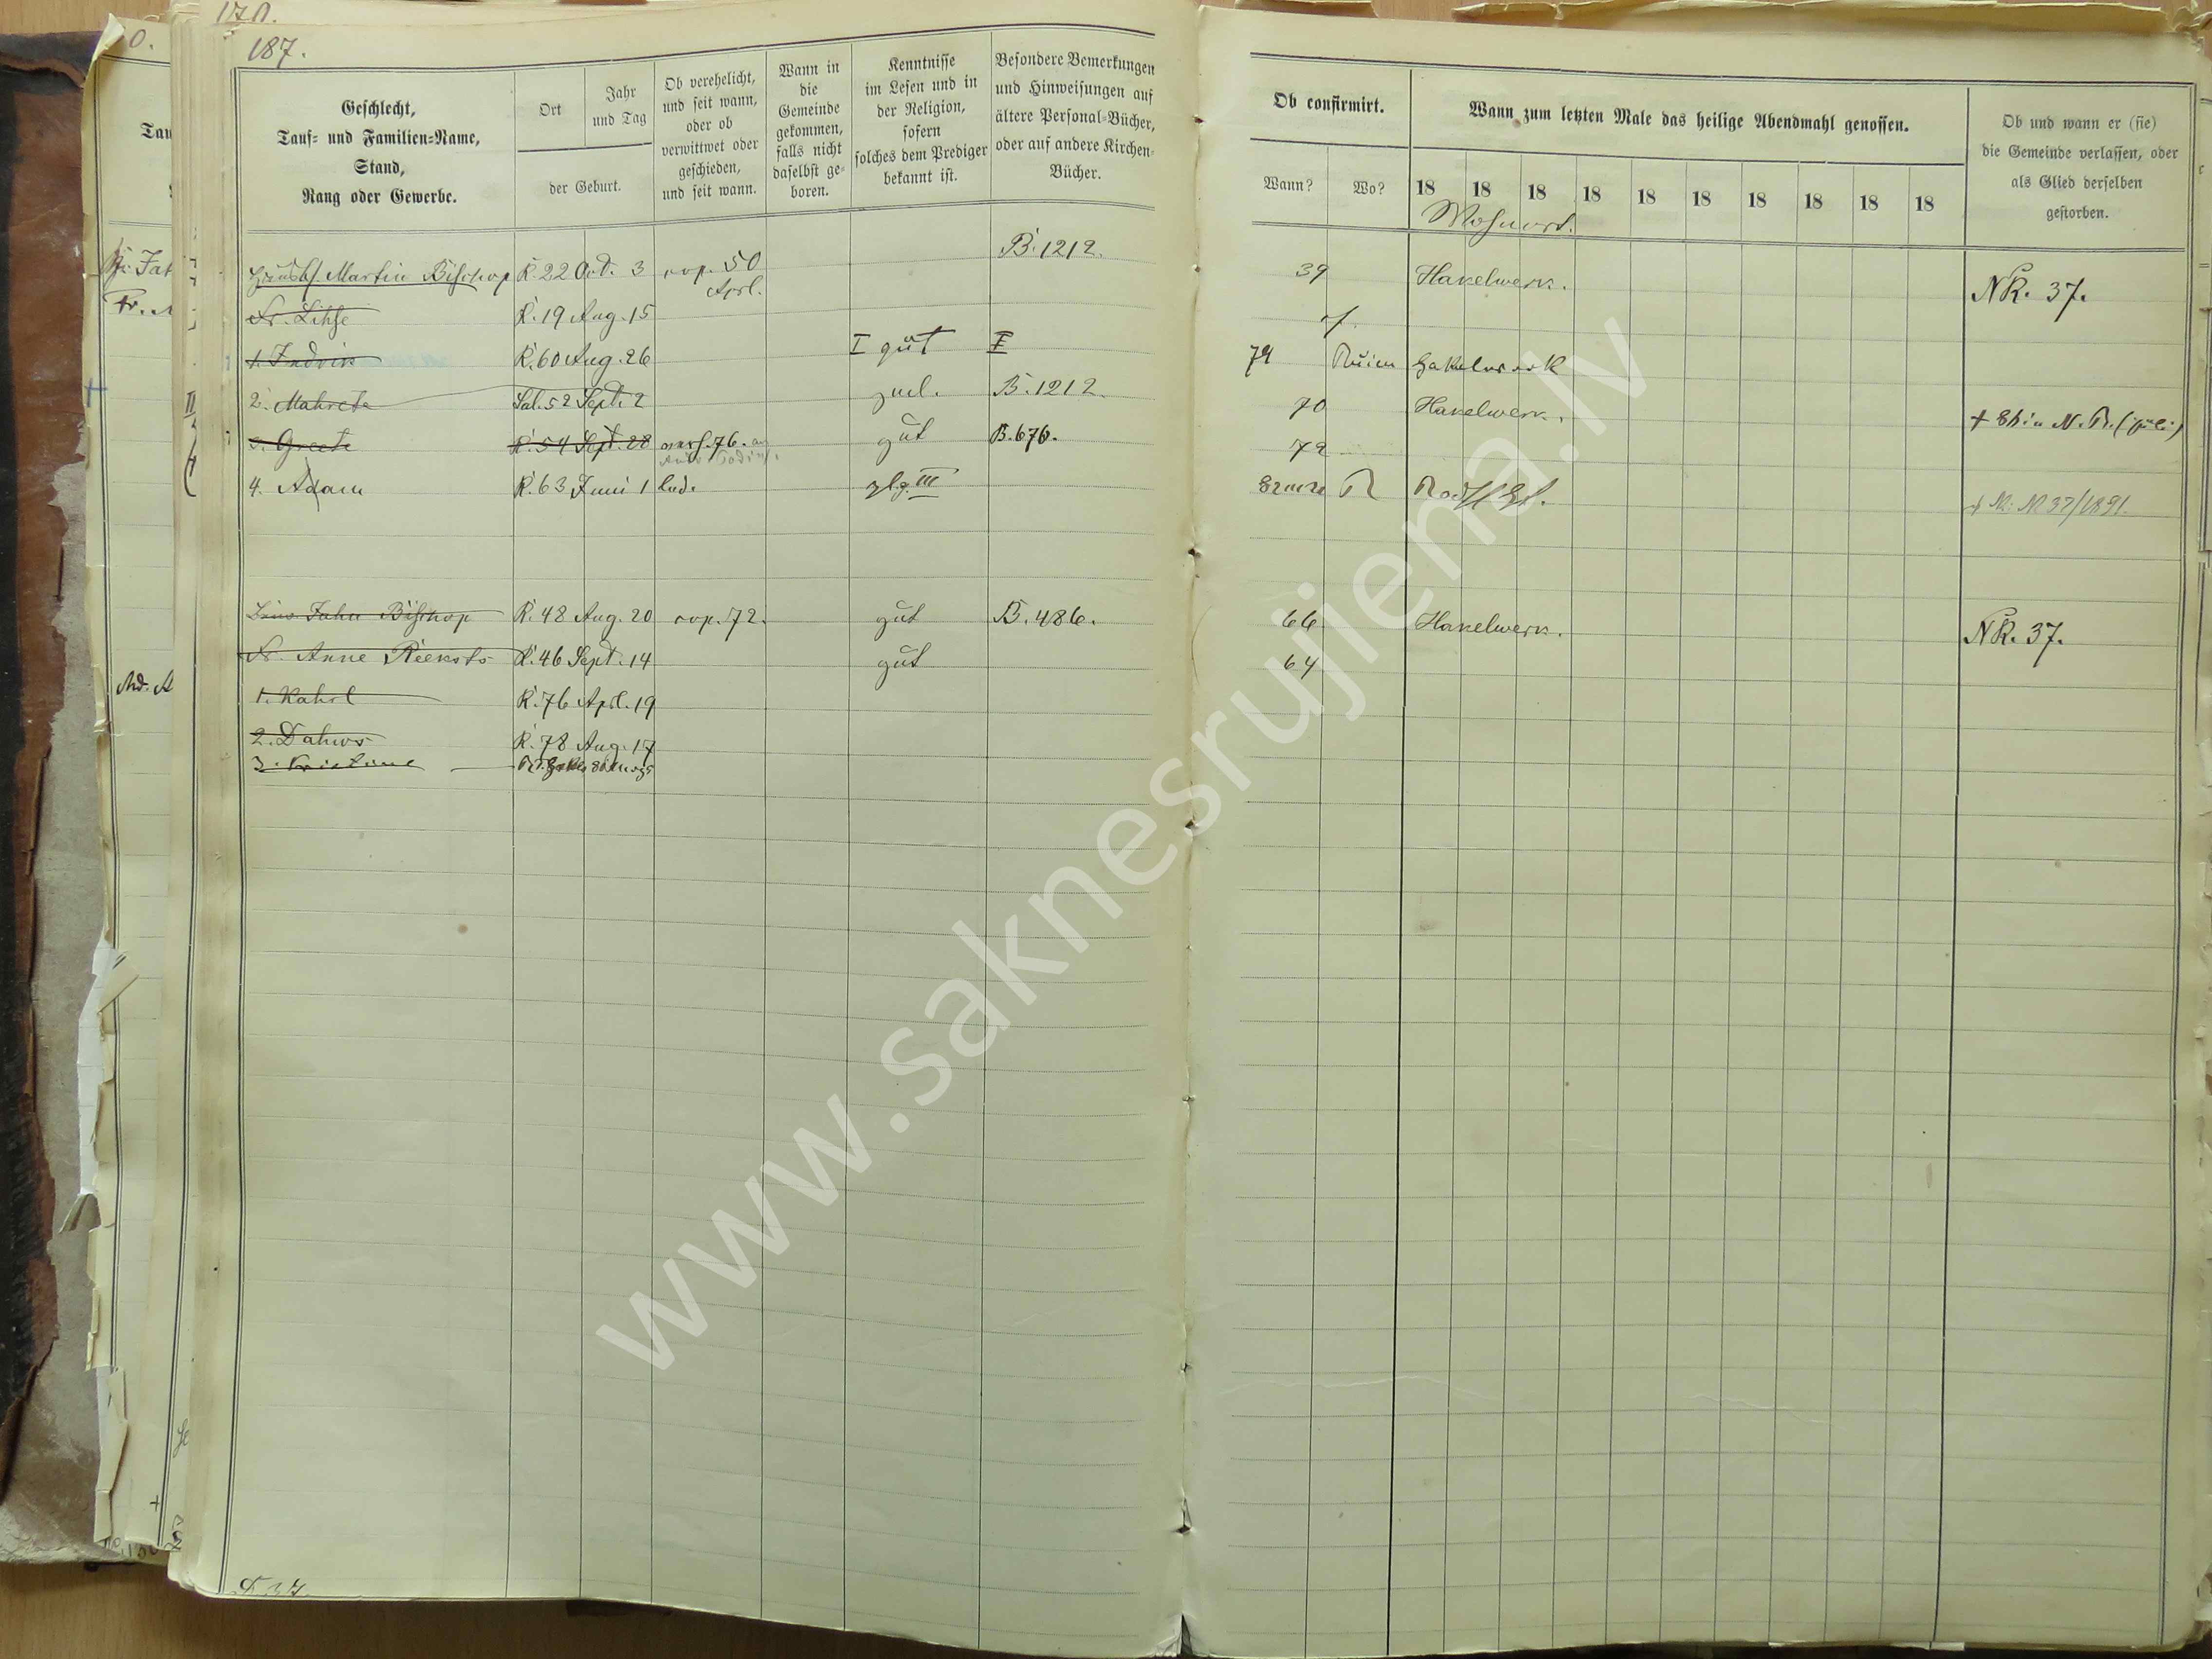 187.
Geschlecht,
Tauf- und Familien-Name,
Stand,
Rang oder Gewerbe.
Ort
Jahr
und Tag
der Geburt.
Ob verehelicht,
und seit wann,
oder ob
verwittwet oder
geschieden,
und seit wann.
Wann in
die
Gemeinde
gekommen,
falls nicht
daselbst ge-
boren.
Kenntnisse
im Lesen und in
der Religion,
sofern
solches dem Prediger
bekannt ist.
Besondere Bemerkungen
und Hinweisungen auf
ältere Personal-Bücher,
oder auf andere Kirchen-
Bücher.
Ob confirmirt.
Wann?
Wo?
Wann zum letzten Male das heilige Abendmahl genossen.
18 18 18 18 18 18 18 18 18 18
Wohnort.
Ob und wann er (sie)
die Gemeinde verlassen, oder
als Glied derselben
gestorben.
B. 1212.
Martin Bischop R. 22 Oct. 3 cop. 50 39 Hakelwerk. NR. 37.
Aprl.
Fr. Lihse R. 19 Aug. 15
1. Indrik R. 60 Aug. 26 I gut I 79 Rujen Hakelwerk
2. Mahrete Sal. 52 Sept. 2 B. 1212. 70 Hakelwerk.
3. Greete R. 54 Sept. 28 76. gut B. 676. 72
4. Adam R. 63 Juni 1 led. III R + N: 37/1891.
Jahn Bischop R. 48 Aug. 20 cop. 72. gut B. 486. 66 Hakelwerk. NR. 37.
Fr. Anne Reeksts R. 46 Sept. 14 gut 64
1. Kahrl R. 76 Aprl. 19
2. Dahws R. 78 Aug. 17
3. Kristine
www.saknesrujiena.lv